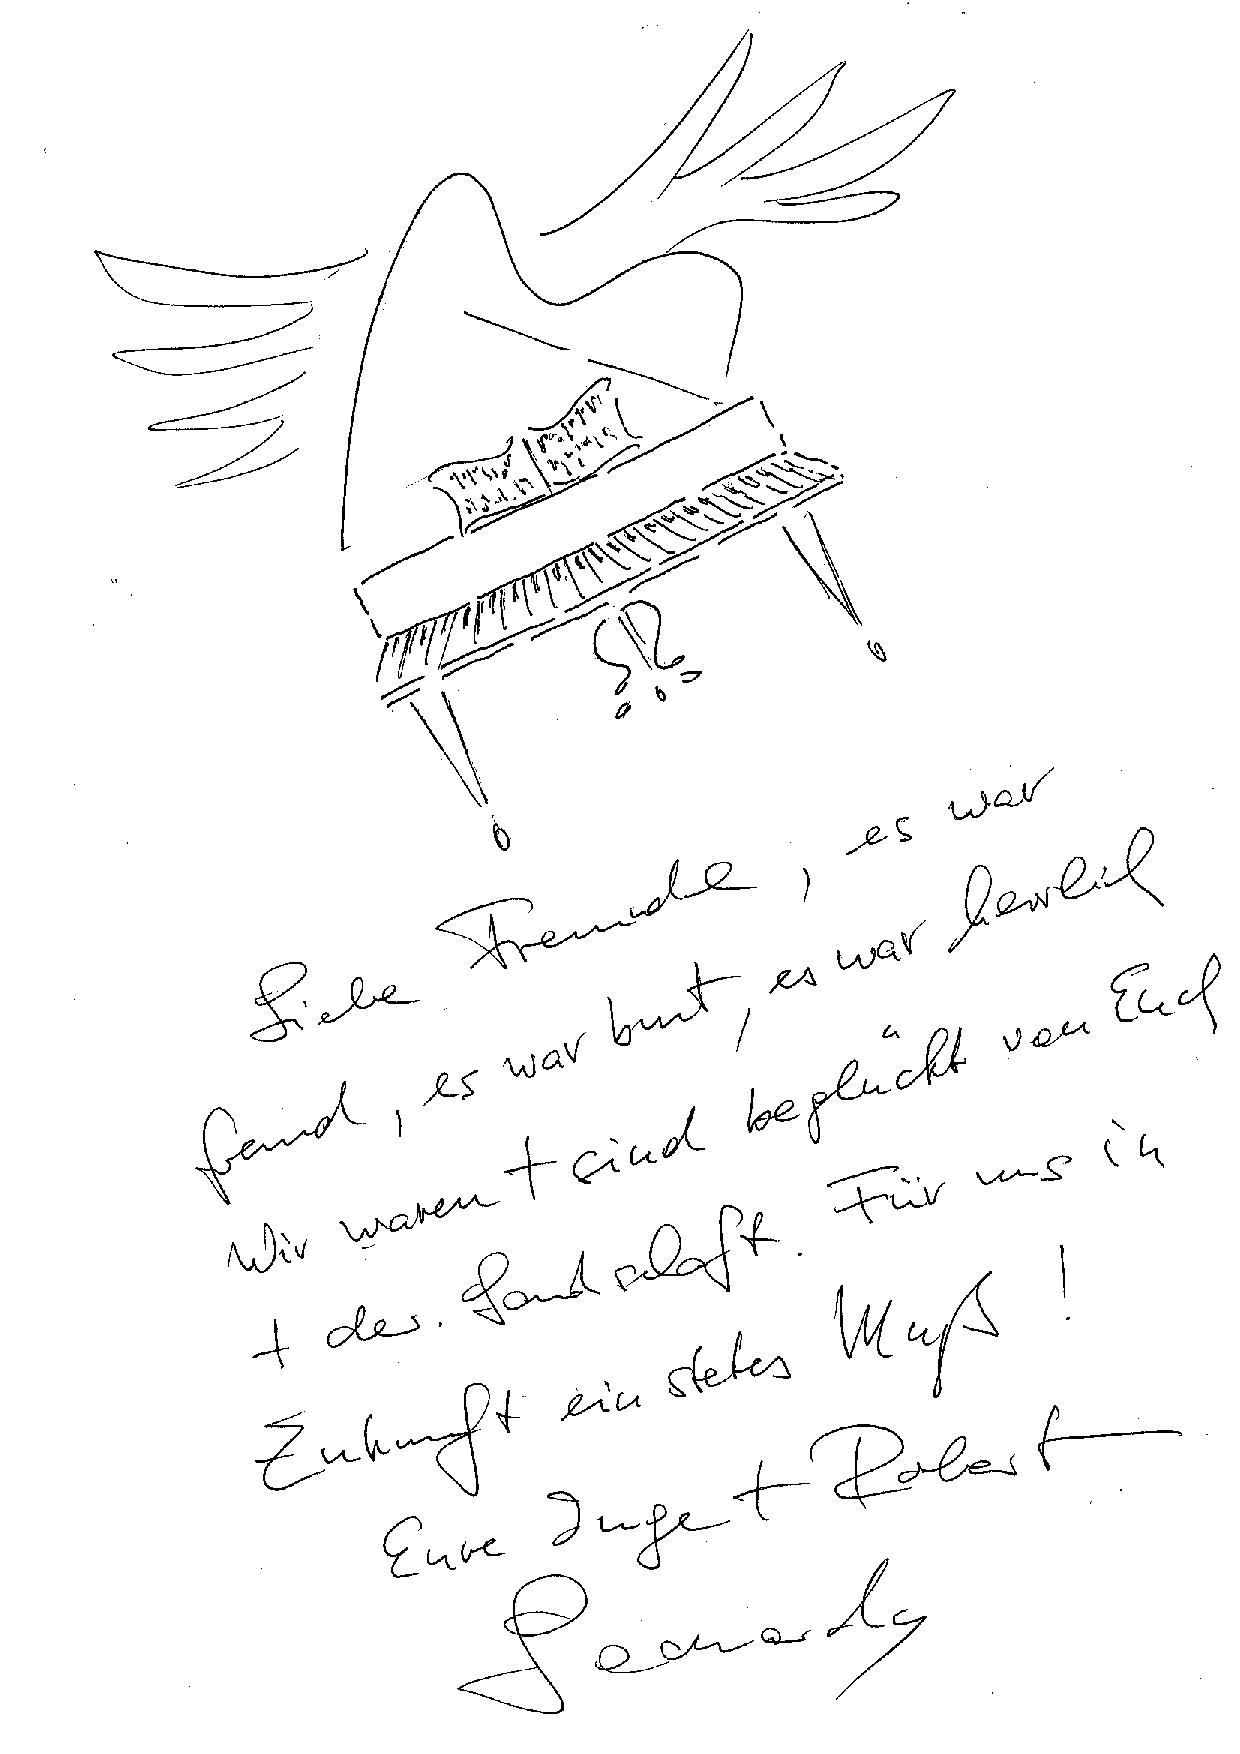 Liebe Freunde, es war
fremd, es war bunt, es war herrlich
Wir waren + sind beglückt von Euch
+ der Landschaft. Für uns in
Zukunft ein stetes Muß!
Eure Inge + Robert
Leonardy